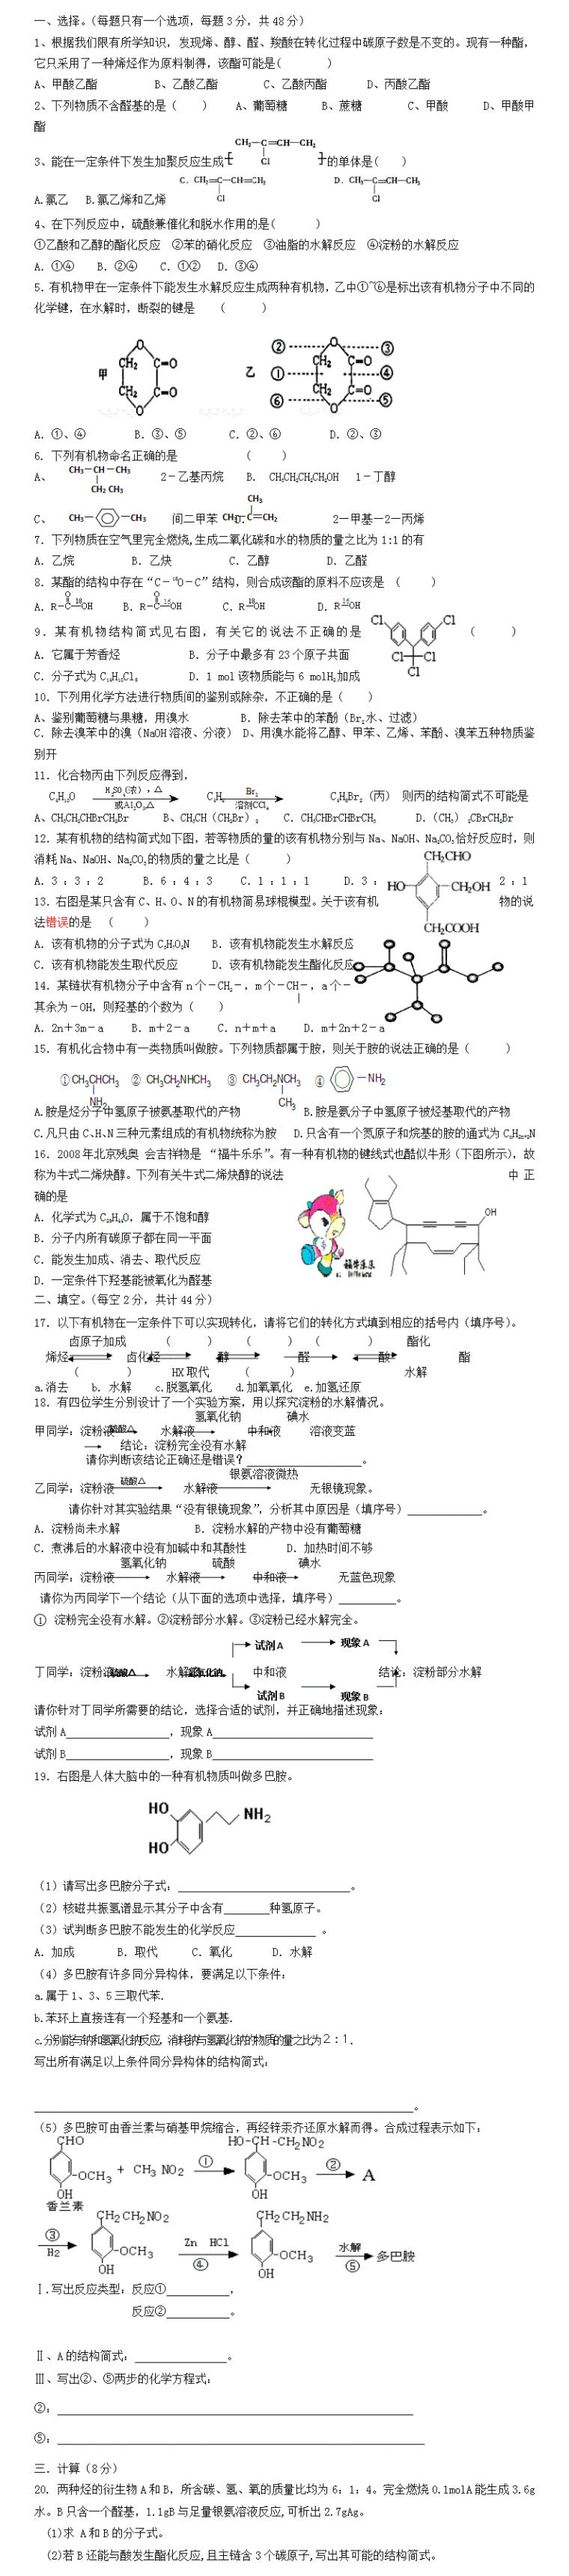 一、选择。(每题只有一个选项，每题3分，共48分)
1、根据我们限有所学知识，发现烯、醇、醛、羧酸在转化过程中碳原子数是不变的。现有一种酯，
它只采用了一种烯烃作为原料制得，该酯可能是(　　)
A、甲酸乙酯　B、乙酸乙酯　C、乙酸丙酯　D、丙酸乙酯
2、下列物质不含醛基的是（　　）　A、葡萄糖　B、蔗糖　C、甲酸　D、甲酸甲
酯
3、能在一定条件下发生加聚反应生成 [CH₂-C=CH-CH₂ Cl] 的单体是(　　)
A.氯乙　B.氯乙烯和乙烯　C．CH₂=C-CH=CH₂ Cl　D．CH₃-C=CH-CH₃ Cl
4、在下列反应中，硫酸兼催化和脱水作用的是(　　)
①乙酸和乙醇的酯化反应　②苯的硝化反应　③油脂的水解反应　④淀粉的水解反应
A．①④　B．②④　C．①②　D．③④
5．有机物甲在一定条件下能发生水解反应生成两种有机物，乙中①~⑥是标出该有机物分子中不同的
化学键，在水解时，断裂的键是　（　　）
甲 O CH₂ C=O CH₂ C=O O　乙 ② ③ ① ④ ⑥ ⑤ O CH₂ C=O CH₂ C=O O
A．①、④　B．③、⑤　C．②、⑥　D．②、③
6．下列有机物命名正确的是　（　　）
A、 CH₃—CH—CH₃ CH₂ CH₃　2－乙基丙烷　B． CH₃CH₂CH₂CH₂OH　1－丁醇
C、 CH₃—CH₃　间二甲苯　D． CH₃ CH₃—C=CH₂　2—甲基—2—丙烯
7．下列物质在空气里完全燃烧,生成二氧化碳和水的物质的量之比为1:1的有
A．乙烷　B．乙炔　C．乙醇　D．乙醛
8．某酯的结构中存在“C－¹⁸O－C”结构，则合成该酯的原料不应该是　（　　）
A．R—C(O)—¹⁸OH　B．R—C(O)—¹⁶OH　C．R—¹⁸OH　D．R—¹⁶OH
9．某有机物结构简式见右图，有关它的说法不正确的是　（　　）
Cl Cl Cl Cl Cl
A．它属于芳香烃　B．分子中最多有23个原子共面
C．分子式为C₁₄H₁₀Cl₅　D．1 mol该物质能与6 molH₂加成
10．下列用化学方法进行物质间的鉴别或除杂，不正确的是（　　）
A、鉴别葡萄糖与果糖，用溴水　B．除去苯中的苯酚（Br₂水、过滤）
C．除去溴苯中的溴（NaOH溶液、分液）　D、用溴水能将乙醇、甲苯、乙烯、苯酚、溴苯五种物质鉴
别开
11．化合物丙由下列反应得到，
C₄H₁₀O　H₂SO₄(浓)，△ 或Al₂O₃△　C₄H₈　Br₂ 溶剂CCl₄　C₄H₈Br₂（丙）　则丙的结构简式不可能是
A、CH₃CH₂CHBrCH₂Br　B、CH₃CH（CH₂Br）₂　C．CH₃CHBrCHBrCH₃　D．(CH₃）₂CBrCH₂Br
12．某有机物的结构简式如下图，若等物质的量的该有机物分别与Na、NaOH、Na₂CO₃恰好反应时，则
消耗Na、NaOH、Na₂CO₃的物质的量之比是（　　）
CH₂CHO HO CH₂OH CH₂COOH
A．3：3：2　B．6：4：3　C．1：1：1　D．3：2：1
13．右图是某只含有C、H、O、N的有机物简易球棍模型。关于该有机物的说
法错误的是　（　　）
A．该有机物的分子式为C₃H₇O₂N　B．该有机物能发生水解反应
C．该有机物能发生取代反应　D．该有机物能发生酯化反应
14．某链状有机物分子中含有n个－CH₂－，m个－CH－，a个－
其余为－OH，则羟基的个数为（　　）
A．2n＋3m－a　B．m＋2－a　C．n＋m＋a　D．m＋2n＋2－a
15．有机化合物中有一类物质叫做胺。下列物质都属于胺，则关于胺的说法正确的是（　　）
①CH₃CHCH₃ NH₂　② CH₃CH₂NHCH₃　③ CH₃CH₂NCH₃ CH₃　④ —NH₂
A.胺是烃分子中氢原子被氨基取代的产物　B.胺是氨分子中氢原子被烃基取代的产物
C.凡只由C、H、N三种元素组成的有机物统称为胺　D.只含有一个氮原子和烷基的胺的通式为CₙH₂ₙ₊₃N
16．2008年北京残奥 会吉祥物是 “福牛乐乐”。有一种有机物的键线式也酷似牛形（下图所示)，故
称为牛式二烯炔醇。下列有关牛式二烯炔醇的说法中 正
确的是
OH
A．化学式为C₂₉H₄₄O，属于不饱和醇
B．分子内所有碳原子都在同一平面
C．能发生加成、消去、取代反应
D．一定条件下羟基能被氧化为醛基
二、填空。(每空2分，共计44分)
17．以下有机物在一定条件下可以实现转化，请将它们的转化方式填到相应的括号内（填序号）。
卤原子加成　（　　）　（　　）　（　　）　酯化
烯烃　卤代烃　醇　醛　酸　酯
（　　）　HX取代　（　　）　水解
a.消去　b. 水解　c.脱氢氧化　d.加氧氧化　e.加氢还原
18．有四位学生分别设计了一个实验方案，用以探究淀粉的水解情况。
氢氧化钠　碘水
甲同学：淀粉液　硫酸△　水解液　中和液　溶液变蓝
结论：淀粉完全没有水解
请你判断该结论正确还是错误？____________。
银氨溶液微热
乙同学：淀粉液　硫酸△　水解液　无银镜现象。
请你针对其实验结果“没有银镜现象”，分析其中原因是（填序号）____________。
A．淀粉尚未水解　B．淀粉水解的产物中没有葡萄糖
C．煮沸后的水解液中没有加碱中和其酸性　D．加热时间不够
氢氧化钠　硫酸　碘水
丙同学：淀粉液　水解液　中和液　无蓝色现象
请你为丙同学下一个结论（从下面的选项中选择，填序号）__________。
① 淀粉完全没有水解。②淀粉部分水解。③淀粉已经水解完全。
试剂A　现象A
丁同学：淀粉液　硫酸△　水解液　氢氧化钠　中和液　结论：淀粉部分水解
试剂B　现象B
请你针对丁同学所需要的结论，选择合适的试剂，并正确地描述现象：
试剂A________________，现象A________________
试剂B________________，现象B________________
19．右图是人体大脑中的一种有机物质叫做多巴胺。
HO HO NH₂
（1）请写出多巴胺分子式：________________。
（2）核磁共振氢谱显示其分子中含有_______种氢原子。
（3）试判断多巴胺不能发生的化学反应____________ 。
A．加成　B．取代　C．氧化　D．水解
（4）多巴胺有许多同分异构体，要满足以下条件：
a.属于1、3、5三取代苯.
b.苯环上直接连有一个羟基和一个氨基.
c.分别能与钠和氢氧化钠反应，消耗钠与氢氧化钠的物质的量之比为2：1.
写出所有满足以上条件同分异构体的结构简式：
________________________________。
（5）多巴胺可由香兰素与硝基甲烷缩合，再经锌汞齐还原水解而得。合成过程表示如下：
CHO OCH₃ OH 香兰素 + CH₃ NO₂ ① HO-CH-CH₂NO₂ OCH₃ OH ② A
③ H2 CH₂CH₂NO₂ OCH₃ OH Zn HCl ④ CH₂CH₂NH₂ OCH₃ OH 水解 ⑤ 多巴胺
Ⅰ.写出反应类型：反应①__________，
反应②__________。
Ⅱ、A的结构简式：______________。
Ⅲ、写出②、⑤两步的化学方程式：
②：________________________________
⑤：________________________________
三．计算（8分）
20．两种烃的衍生物A和B，所含碳、氢、氧的质量比均为6：1：4。完全燃烧0.1molA能生成3.6g
水。B只含一个醛基，1.1gB与足量银氨溶液反应,可析出2.7gAg。
(1)求 A和B的分子式。
(2)若B还能与酸发生酯化反应,且主链含3个碳原子,写出其可能的结构简式。